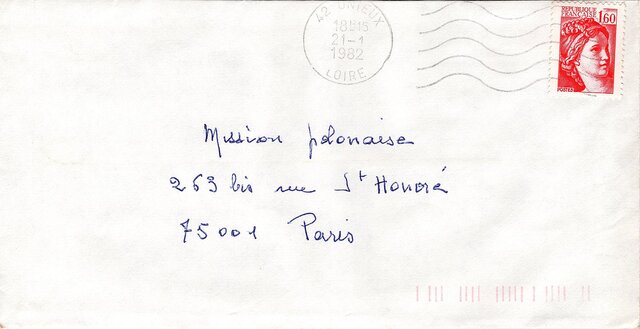 42 UNIEUX
18H15
21-1
1982
LOIRE
REPUBLIQUE
FRANÇAISE
1,60
POSTES
Mission polonaise
263 bis rue St Honoré
75001 Paris